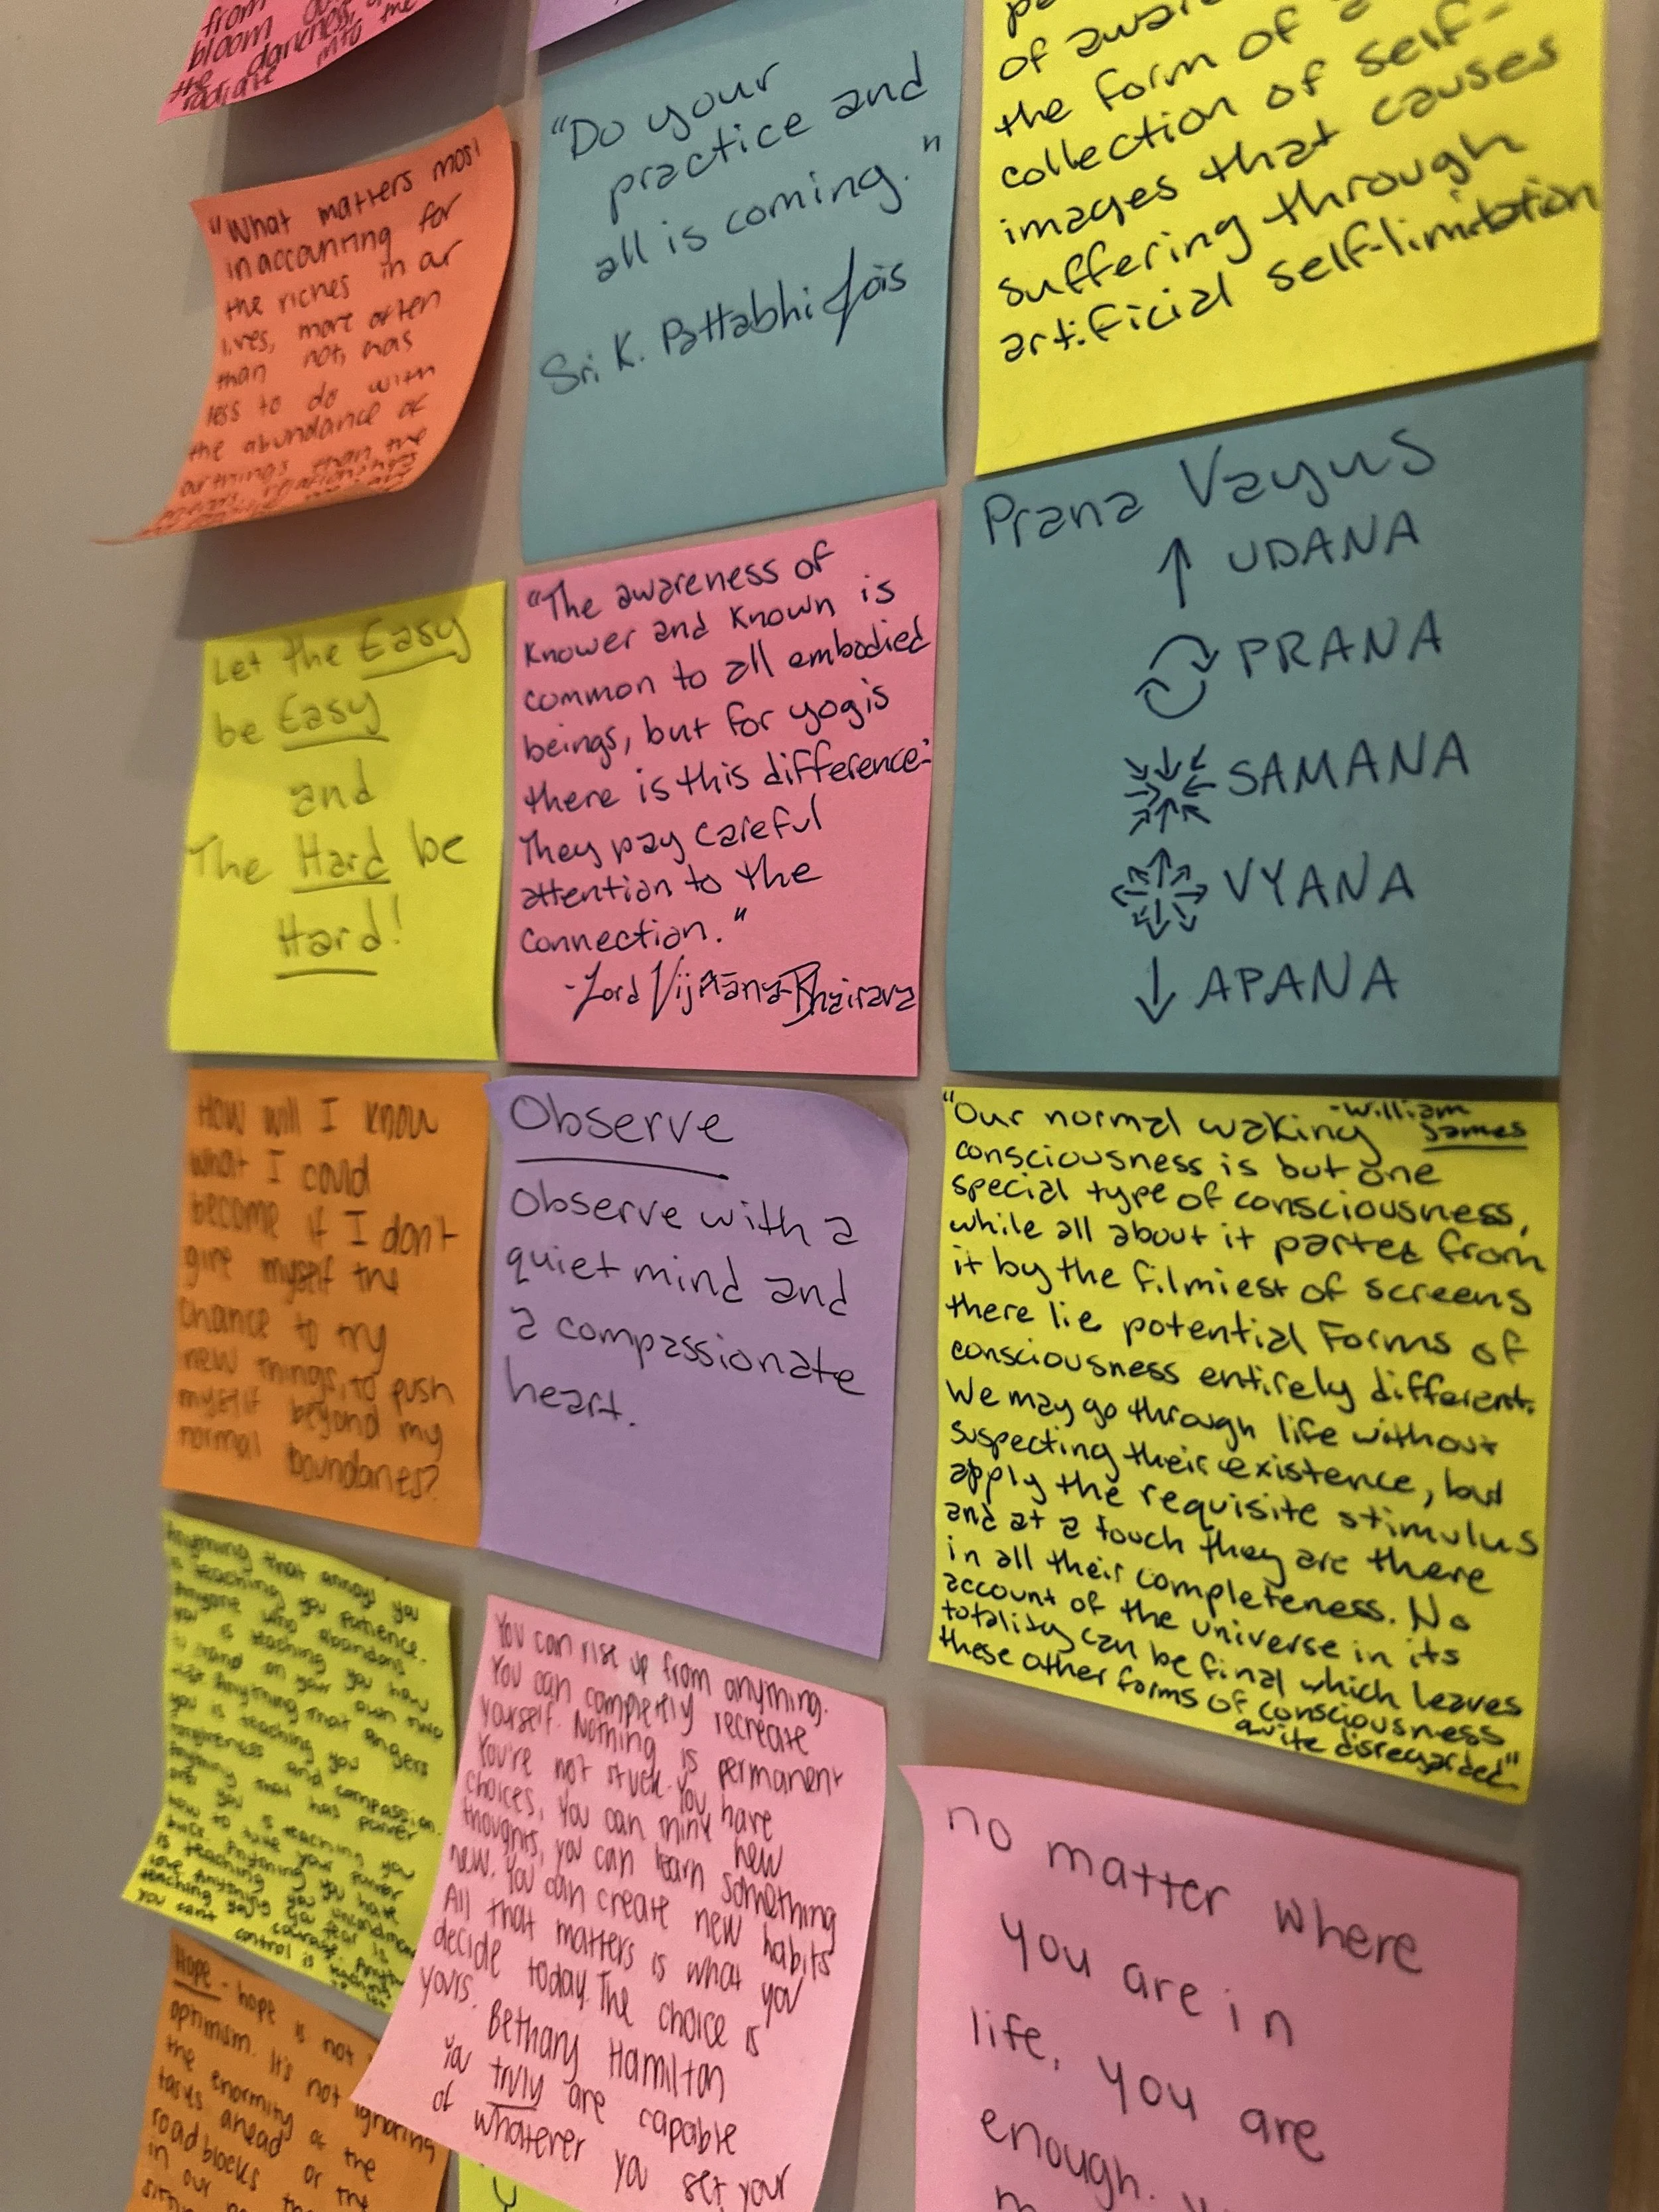 from
bloom
the darkness,
radiate into
"What matters most
in accounting for
the riches in ar
lives, more often
than not, has
less to do with
the abundance of
our things than the
"Do your
practice and
all is coming."
Sri K. Pattabhi Jois
of
the form of a
collection of self-
images that causes
suffering through
artificial self-limitation
Let the Easy
be Easy
and
The Hard be
Hard!
"The awareness of
Knower and Known is
common to all embodied
beings, but for yogis
there is this difference:
They pay careful
attention to the
connection."
-Lord Vijñāna-Bhairava
Prana Vayus
↑ UDANA
PRANA
SAMANA
VYANA
↓ APANA
How will I know
what I could
become if I don't
give myself the
chance to try
new things, to push
myself beyond my
normal boundaries?
Observe
Observe with a
quiet mind and
a compassionate
heart.
"Our normal waking -William James
consciousness is but one
special type of consciousness,
while all about it parted from
it by the filmiest of screens
there lie potential Forms of
consciousness entirely different.
We may go through life without
suspecting their existence, but
apply the requisite stimulus
and at a touch they are there
in all their completeness. No
account of the universe in its
totality can be final which leaves
these other forms of consciousness
quite disregarded"
Anything that annoys you
is teaching you patience.
Anyone who abandons
you is teaching you how
to stand on your own two
feet. Anything that angers
you is teaching you
forgiveness and compassion.
Anything that has power
over you is teaching you
how to take your power
back. Anything you hate
is teaching you unconditional
love. Anything you fear is
teaching you courage. Anything
you can't control is teaching
You can rise up from anything.
You can completly recreate
yourself. Nothing is permanent
You're not stuck. You have
choices. You can think new
thoughts, you can learn something
new. You can create new habits
All that matters is what you
decide today. The choice is
yours. Bethany Hamilton
You truly are capable
of whatever you set your
no matter where
you are in
life, you are
enough.
Hope - hope is not
optimism. It's not ignoring
the enormity of the
tasks ahead or the
roadblocks
in our